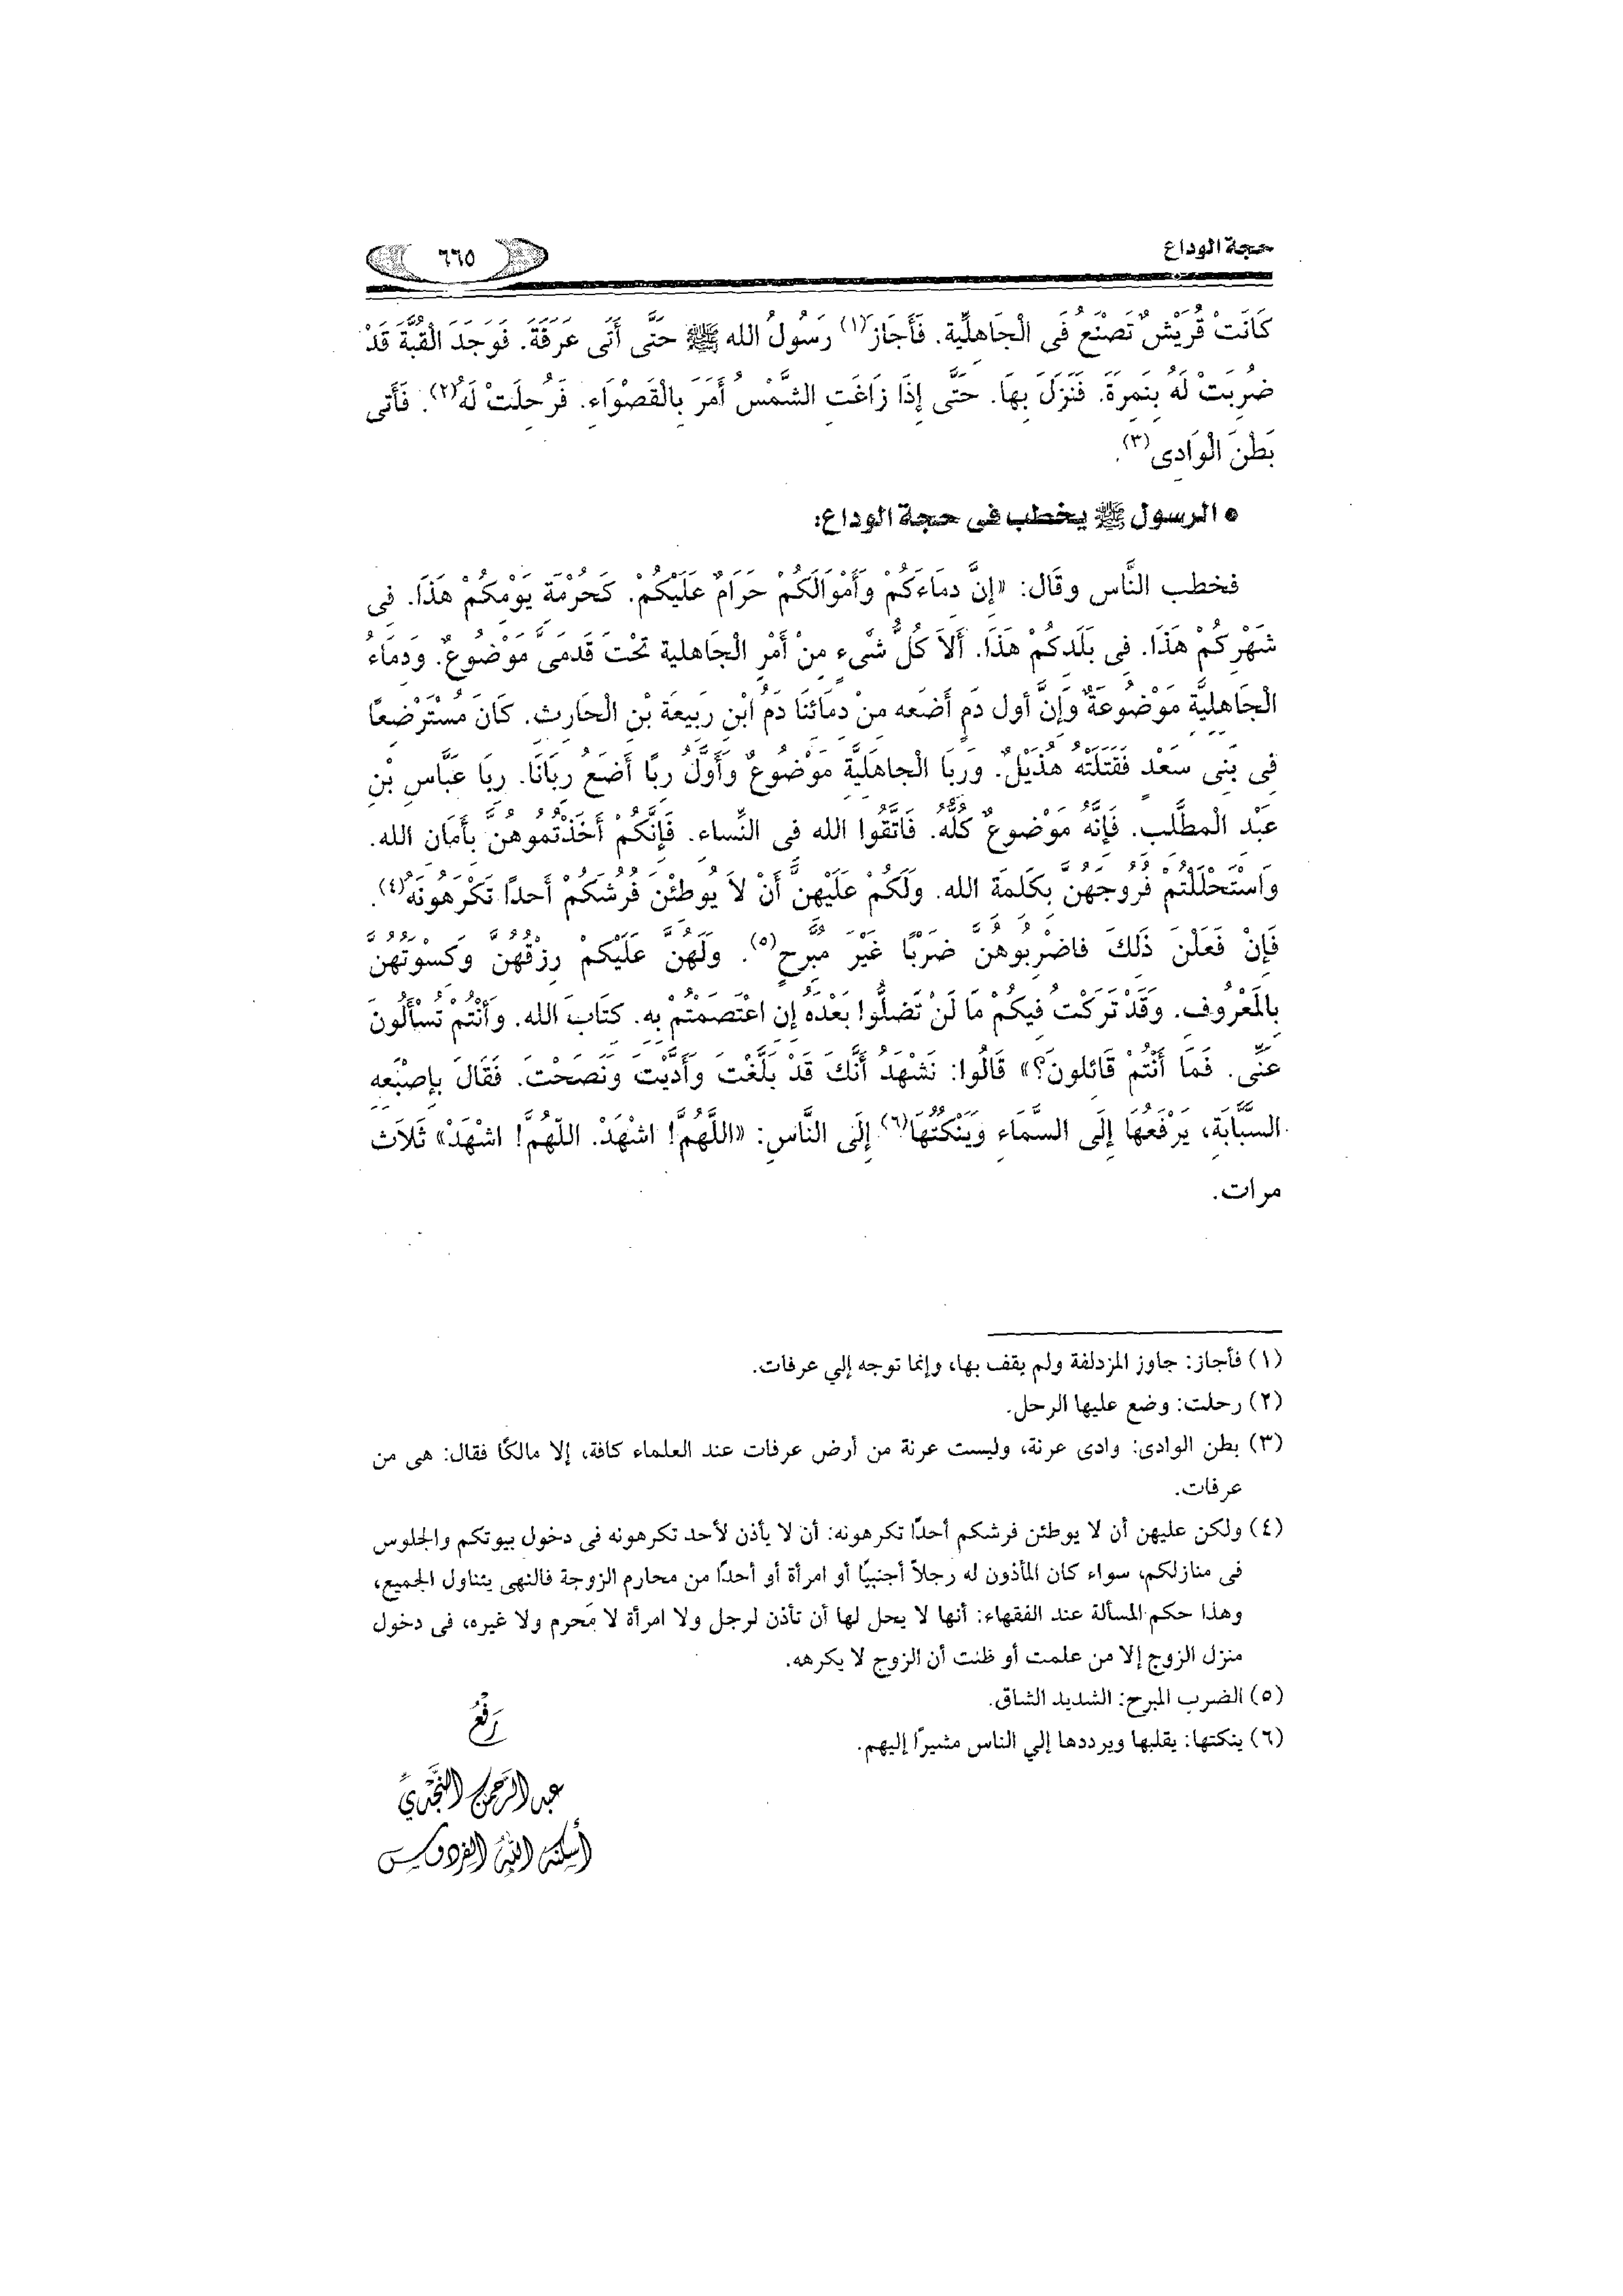 حجة الوداع
٦٦٥
كَانَتْ قُرَيْشٌ تَصْنَعُ فَى الْجَاهليَّة. فَأَجَازَ(١) رَسُولُ الله ﷺ حَتَّى أَتَى عَرَفَةَ. فَوَجَدَ الْقُبَّةَ قَدْ
ضُرِبَتْ لَهُ بِنَمِرَةَ. فَنَزَلَ بِهَا. حَتَّى إِذَا زَاغَتِ الشَّمْسُ أَمَرَ بِالْقَصْوَاءِ. فَرُحِلَتْ لَهُ(٢). فَأَتى
بَطْنَ الْوَادِى(٣).
• الرسول ﷺ يخطب فى حجة الوداع:
فخطب النَّاس وقَال: «إنَّ دِمَاءَكُمْ وَأَمْوَالَكُمْ حَرَامٌ عَلَيْكُمْ. كَحُرْمَةِ يَوْمِكُمْ هَذَا. فِى
شَهْرِكُمْ هَذَا. فِى بَلَدِكُمْ هَذَا. أَلاَ كُلُّ شَىءٍ مِنْ أَمْرِ الْجَاهلية تَحْتَ قَدَمَىَّ مَوْضُوعٌ. وَدِمَاءُ
الْجَاهِلِيَّةِ مَوْضُوعَةٌ وَإِنَّ أول دَمٍ أَضَعه مِنْ دِمَائِنَا دَمُ ابْنِ رَبِيعَةَ بْنِ الْحَارِثِ. كَانَ مُسْتَرْضِعًا
فِى بَنِى سَعْدٍ فَقَتَلَتْهُ هُذَيْلٌ. وَرِبَا الْجاهَلِيَّةِ مَوْضُوعٌ وَأَوَّلُ رِبًا أَضَعُ رِبَانَا. رِبَا عَبَّاسِ بْنِ
عَبْدِ الْمطَّلب. فَإِنَّهُ مَوْضوعٌ كُلُّهُ. فَاتَّقُوا الله فى النِّساءِ. فَإِنَّكُمْ أَخَذْتُموهُنَّ بِأَمَانِ الله.
وَاسْتَحْلَلْتُمْ فُرُوجَهُنَّ بِكَلمَة الله. وَلَكُمْ عَلَيْهِنَّ أَنْ لاَ يُوطِئْنَ فُرُشَكُمْ أَحدًا تَكْرَهُونَهُ(٤).
فَإِنْ فَعَلْنَ ذَلِكَ فاضْرِبُوهُنَّ ضَرْبًا غَيْرَ مُبَرِّحٍ(٥). وَلَهُنَّ عَلَيْكُمْ رِزْقُهُنَّ وَكِسْوَتُهُنَّ
بِالمَعْرُوفِ. وَقَدْ تَرَكْتُ فِيكُمْ مَا لَنْ تَضِلُّوا بَعْدَهُ إِنِ اعْتَصَمْتُمْ بِهِ. كِتَابَ الله. وَأَنْتُمْ تُسْأَلُونَ
عَنِّى. فَمَا أَنْتُمْ قَائِلونَ؟» قَالُوا: نَشْهَدُ أَنَّكَ قَدْ بَلَّغْتَ وَأَدَّيْتَ وَنَصَحْتَ. فَقَالَ بِإِصْبَعِهِ
السَّبَّابَةِ، يَرْفَعُهَا إِلَى السَّمَاءِ وَيَنْكُتُهَا(٦) إِلَى النَّاسِ: «اللَّهُمَّ! اشْهَدْ. اللَّهُمَّ! اشْهَدْ» ثَلاَث
مرات.
(١) فأجاز: جاوز المزدلفة ولم يقف بها، وإنما توجه إلي عرفات.
(٢) رحلت: وضع عليها الرحل.
(٣) بطن الوادى: وادى عرنة، وليست عرنة من أرض عرفات عند العلماء كافة، إلا مالكًا فقال: هى من
عرفات.
(٤) ولكن عليهن أن لا يوطئن فرشكم أحدًا تكرهونه: أن لا يأذن لأحد تكرهونه فى دخول بيوتكم والجلوس
فى منازلكم، سواء كان المأذون له رجلاً أجنبيًا أو امرأة أو أحدًا من محارم الزوجة فالنهى يتناول الجميع،
وهذا حكم المسألة عند الفقهاء: أنها لا يحل لها أن تأذن لرجل ولا امرأة لا مَحرم ولا غيره، فى دخول
منزل الزوج إلا من علمت أو ظنت أن الزوج لا يكرهه.
(٥) الضرب المبرح: الشديد الشاق.
(٦) ينكتها: يقلبها ويرددها إلي الناس مشيرًا إليهم.
رَفْعُ
عبد الرَّحمن النَّجْدي
أسكنه اللَّهُ الفردوس